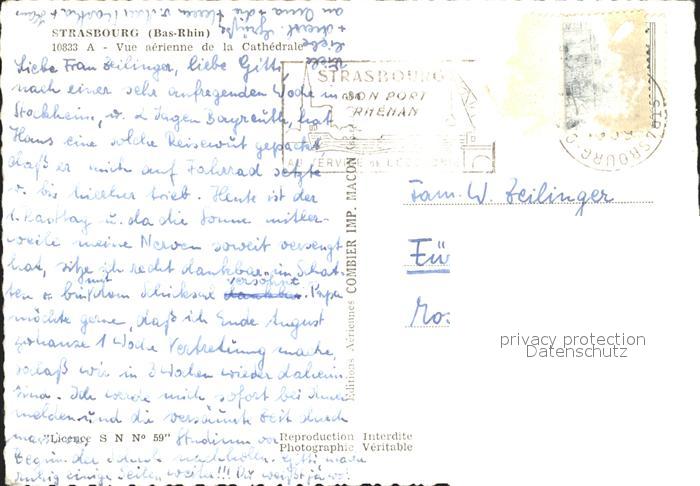 STRASBOURG (Bas-Rhin)
10833 A - Vue aérienne de la Cathédrale
Liebe Frau Zeilinger, liebe Gitti,
nach einer sehr aufregenden Woche in
Stockheim, u. 2 Tagen Bayreuth, hat
Hans eine solche Reisewut gepackt,
daß er mich auf Fahrrad setzte
u. bis hierher trieb. Heute ist der
1. Rasttag u. da die Sonne mittler-
weile meine Nerven soweit versengt
hat, sitze ich recht dankbar im Schat-
ten u. bin mit dem Schicksal versöhnt. Papa
möchte gerne, daß ich Ende August
zuhause 1 Woche Vertretung mache,
sodaß wir in 3 Wochen wieder daheim
sind. Ich werde mich sofort bei Ihnen
melden und die versäumte Zeit durch
Studium vor
Beginn der Schule nachholen. Gitti
einige Seiten weiter!!! Du weißt ja wo!
"Licence S N Nº 59"
Reproduction Interdite
Photographie Véritable
Editions Aériennes COMBIER IMP. MACON
STRASBOURG
SON PORT
RHÉNAN
AU SERVICE DE L'ECONOMIE
Fam. W. Zeilinger
Fü
Ro.
privacy protection
Datenschutz